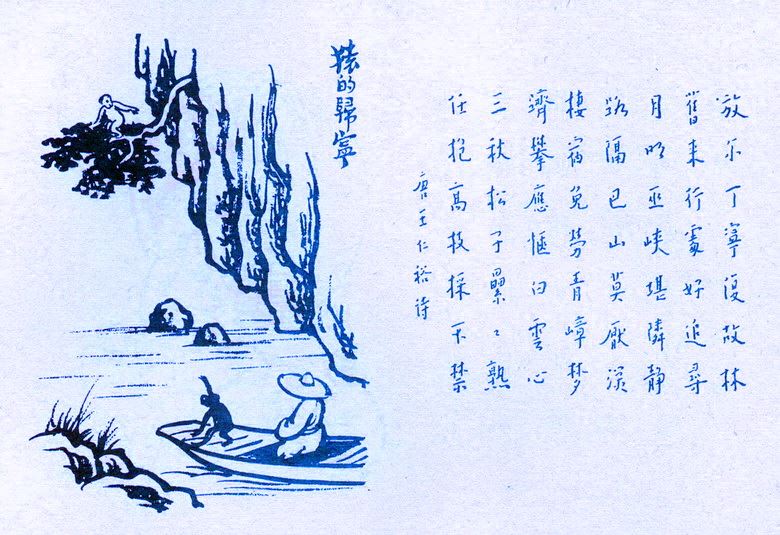 放尔丁寧復故林
舊来行處好追尋
月明巫峽堪憐静
路隔巴山莫厭深
棲宿免勞青嶂梦
躋攀應愜白雲心
三秋松子纍々熟
任抱高枝採不禁
唐王仁裕诗
猿的歸寧